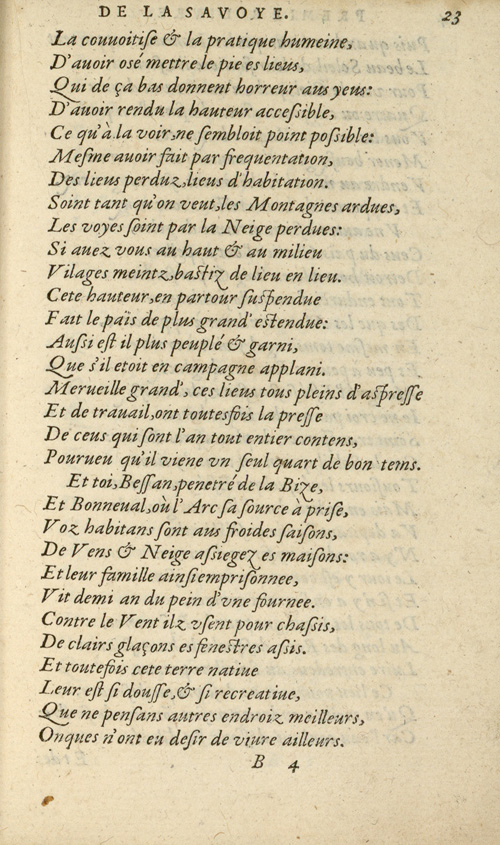 DE LA SAVOYE. 23
La couuoitiſe & la pratique humeine,
D'auoir osé mettre le pié es lieus,
Qui de ça bas donnent horreur aus yeus:
D'auoir rendu la hauteur acceſsible,
Ce qu'à la voir, ne ſembloit point poſsible:
Meſme auoir fait par frequentation,
Des lieus perduz, lieus d'habitation.
Soint tant qu'on veut, les Montagnes ardues,
Les voyes ſoint par la Neige perdues:
Si auez vous au haut & au milieu
Vilages meintz, baſtiz de lieu en lieu.
Cete hauteur, en partour ſuſpendue
Fait le païs de plus grand' eſtendue:
Auſsi eſt il plus peuplé & garni,
Que s'il etoit en campagne applani.
Merueille grand', ces lieus tous pleins d'aſpreſſe
Et de trauail, ont toutesfois la preſſe
De ceus qui ſont l'an tout entier contens,
Pourueu qu'il viene vn ſeul quart de bon tems.
Et toi, Beſſan, penetré de la Bize,
Et Bonneual, où l'Arc ſa ſource à priſe,
Voz habitans ſont aus froides ſaiſons,
De Vens & Neige aſsiegez es maiſons:
Et leur famille ainſi empriſonnee,
Vit demi an du pein d'vne fournee.
Contre le Vent ilz vſent pour chaſsis,
De clairs glaçons es feneſtres aſsis.
Et toutefois cete terre natiue
Leur eſt ſi douſſe, & ſi recreatiue,
Que ne penſans autres endroiz meilleurs,
Onques n'ont eu deſir de viure ailleurs.
B 4